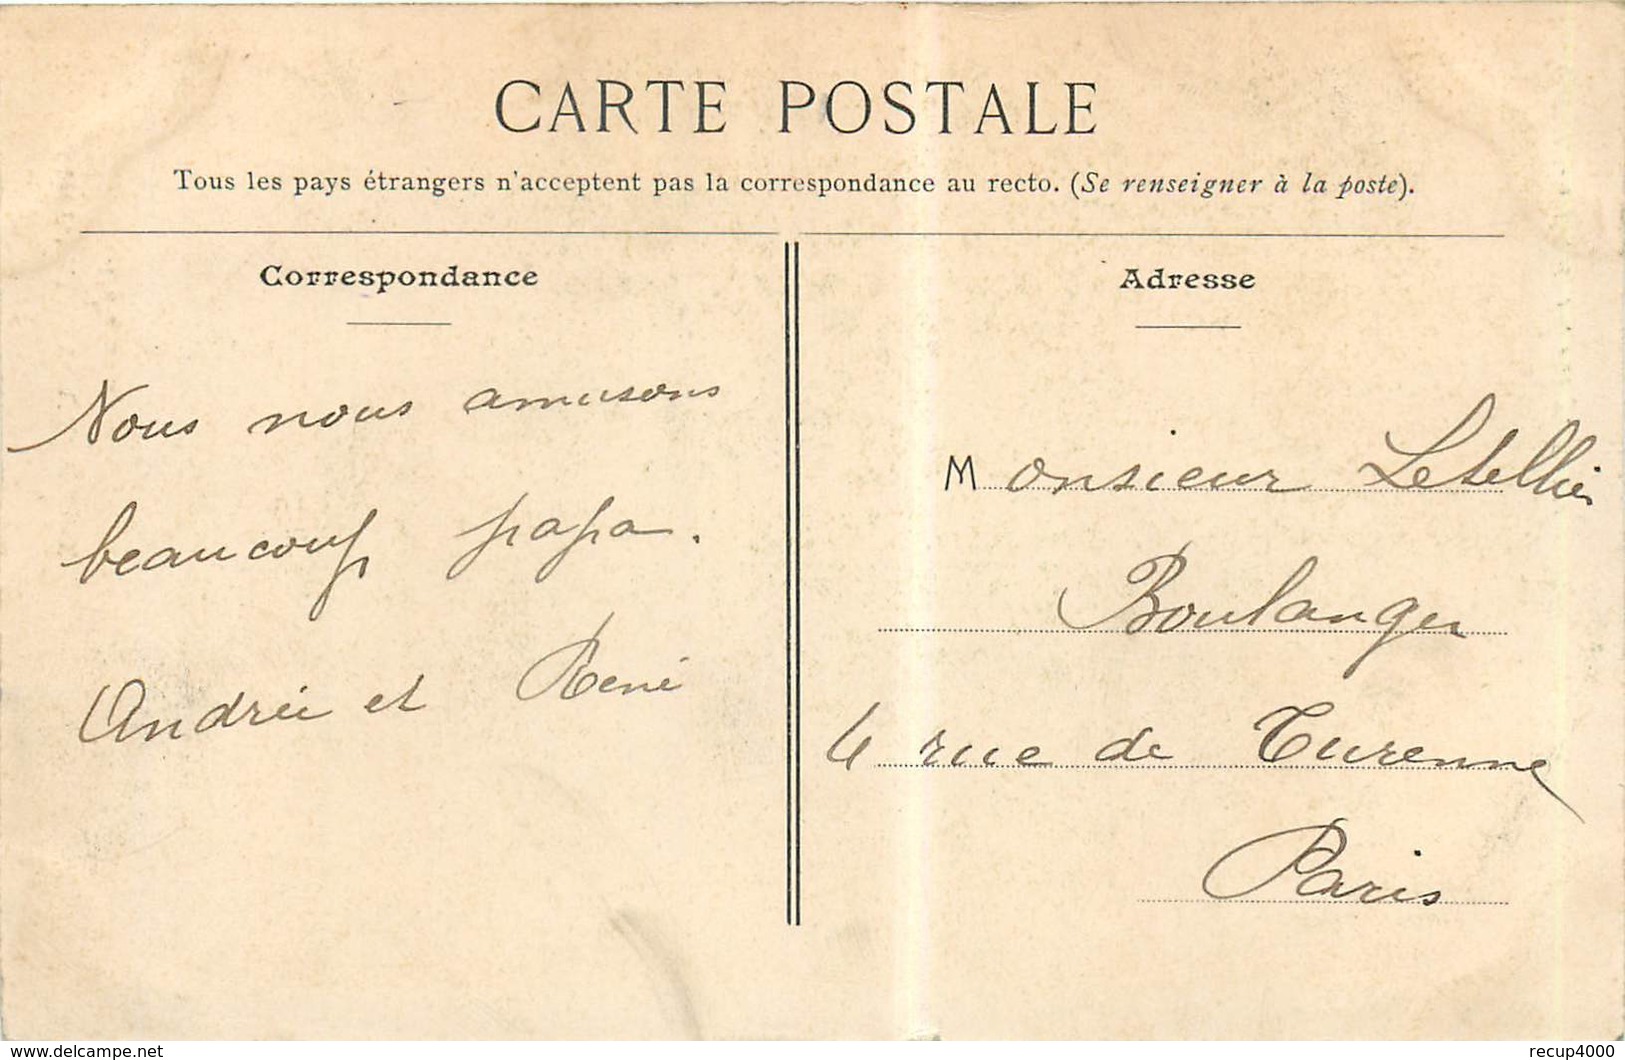 CARTE POSTALE
Tous les pays étrangers n'acceptent pas la correspondance au recto. (Se renseigner à la poste).
Correspondance
Nous nous amusons
beaucoup papa.
Andrée et René
Adresse
Monsieur Letellier
Boulanger
4 rue de Turenne
Paris
www.delcampe.net
recup4000